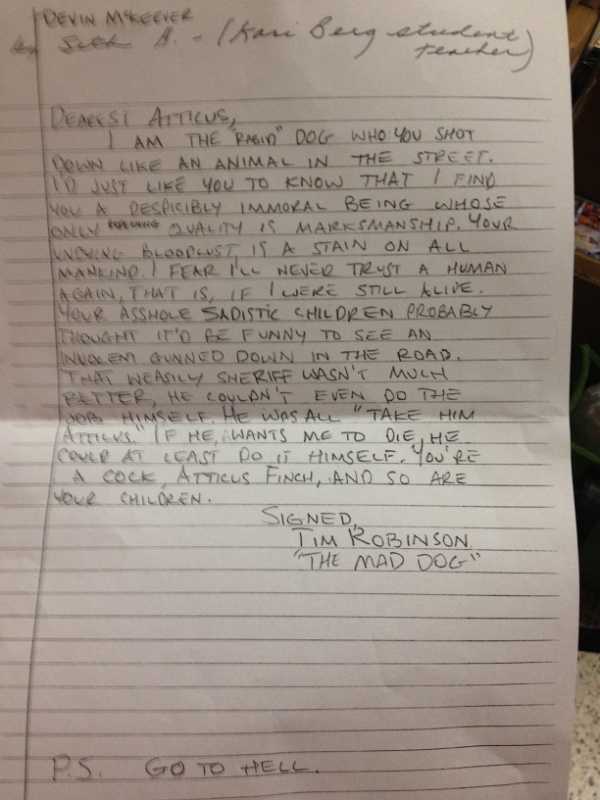 DEVIN MCKEEVER
Seth A. - (Kari Berg student
teacher)
DEAREST ATTICUS,
I AM THE "RABID" DOG WHO YOU SHOT
DOWN LIKE AN ANIMAL IN THE STREET.
I'D JUST LIKE YOU TO KNOW THAT I FIND
YOU A DESPICIBLY IMMORAL BEING WHOSE
ONLY QUALITY IS MARKSMANSHIP. YOUR
UNDYING BLOODLUST IS A STAIN ON ALL
MANKIND. I FEAR I'LL NEVER TRUST A HUMAN
AGAIN, THAT IS, IF I WERE STILL ALIVE.
YOUR ASSHOLE SADISTIC CHILDREN PROBABLY
THOUGHT IT'D BE FUNNY TO SEE AN
INNOCENT GUNNED DOWN IN THE ROAD.
THAT WEASILY SHERIFF WASN'T MUCH
BETTER, HE COULDN'T EVEN DO THE
JOB HIMSELF. HE WAS ALL "TAKE HIM
ATTICUS." IF HE WANTS ME TO DIE, HE
COULD AT LEAST DO IT HIMSELF. YOU'RE
A COCK, ATTICUS FINCH, AND SO ARE
YOUR CHILDREN.
SIGNED,
TIM ROBINSON
"THE MAD DOG"
P.S. GO TO HELL.